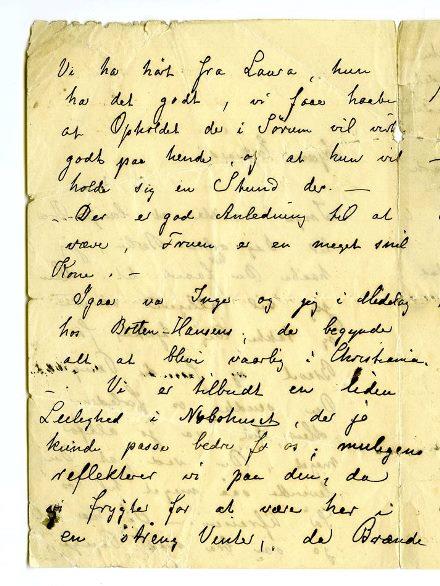 Vi ha hört fra Laura, hun
ha det godt, vi faae haabe
at Opholdet de i Sörum vil virke
godt paa hende, og at hun vil
holde sig en Stund der. —
— Der er god Anledning til at
være, Fruen er en meget snil
Kone. —
Igaar va Inge og jeg i Middag
hos Botten-Hansens, de begynde
alt at blive vaarlig i Christiania.
— Vi er tilbudt en liden
Leilighed i Nabohuset, der jo
kunde passe bedre for os, muligens
reflekterer vi paa den, da
vi frygter for at være her i
en streng Venter, da Brænde